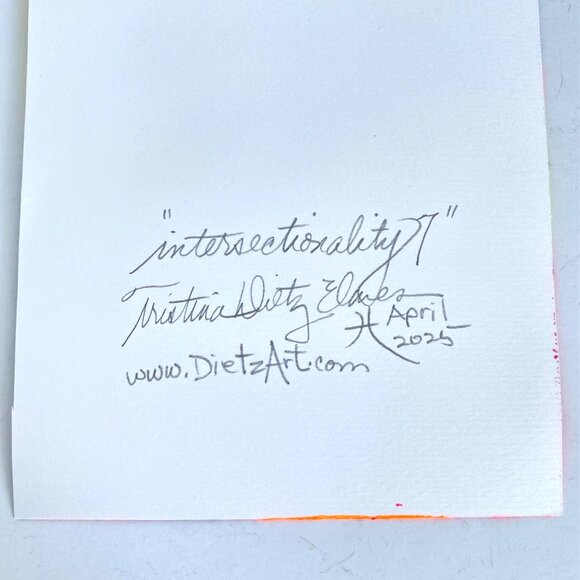 "intersectionality 7"
Tristina Dietz Elmes
April
2025
www.DietzArt.com